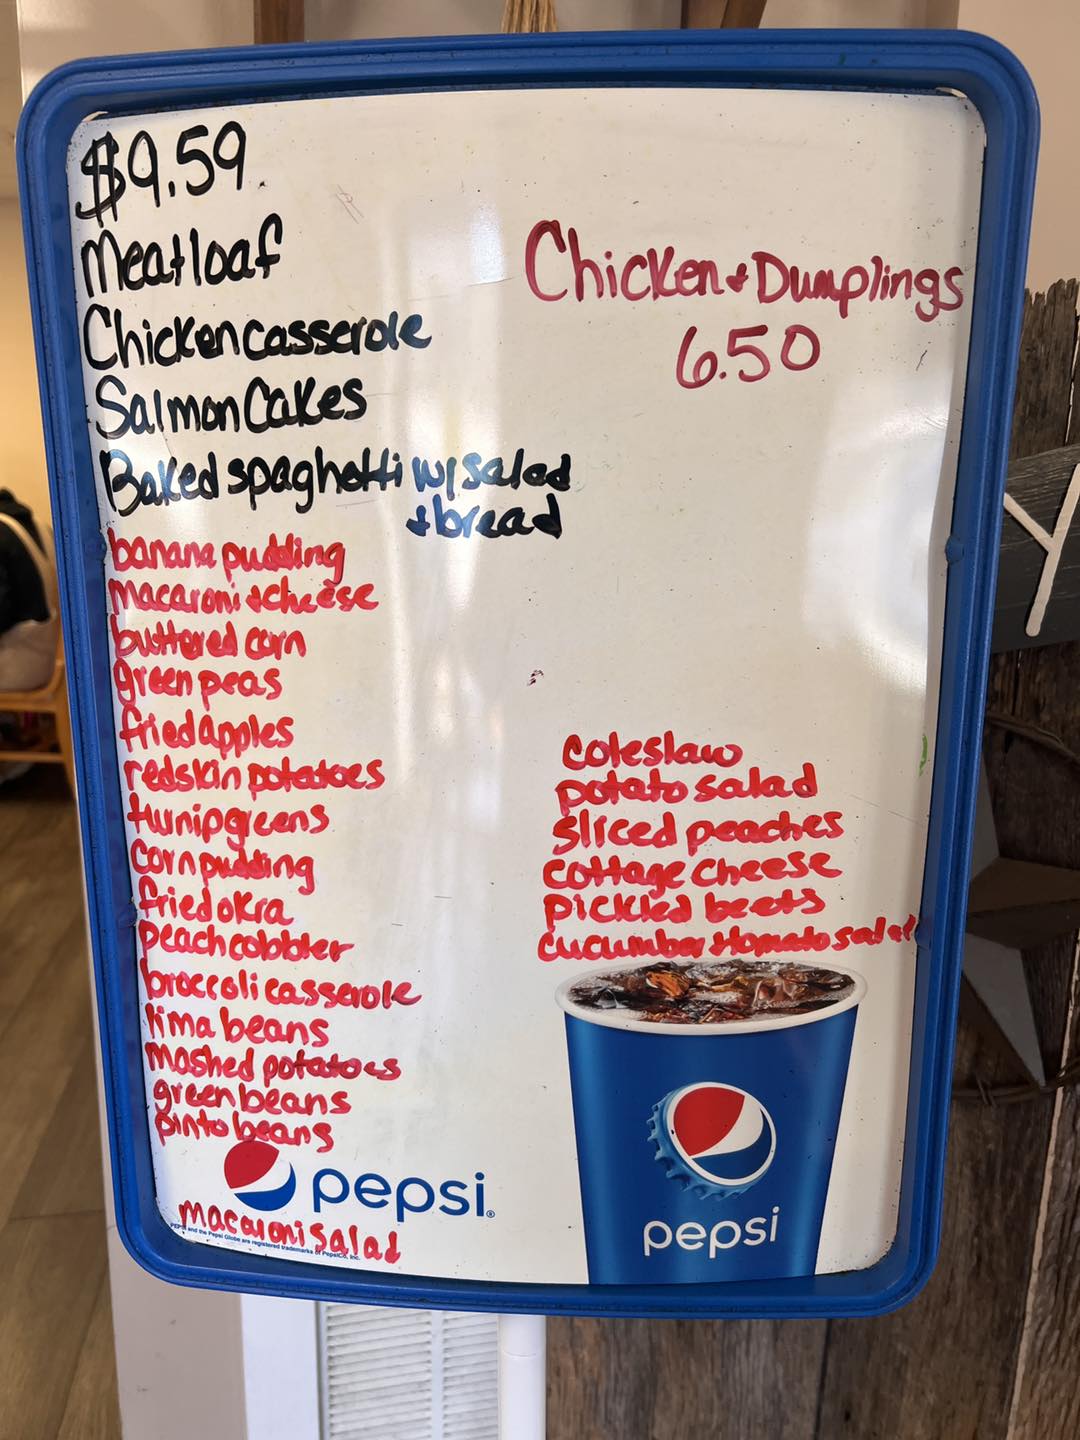 $9.59
Meatloaf
Chicken casserole
Salmon Cakes
Baked spaghetti w/ salad
+ bread
banana pudding
macaroni + cheese
buttered corn
green peas
fried apples
redskin potatoes
turnip greens
corn pudding
fried okra
peach cobbler
broccoli casserole
lima beans
mashed potatoes
green beans
pinto beans
pepsi®
macaroni salad
PEPSI and the Pepsi Globe are registered trademarks of PepsiCo, Inc.
Chicken + Dumplings
6.50
coleslaw
potato salad
sliced peaches
cottage cheese
pickled beets
cucumber tomato salad
pepsi
Y